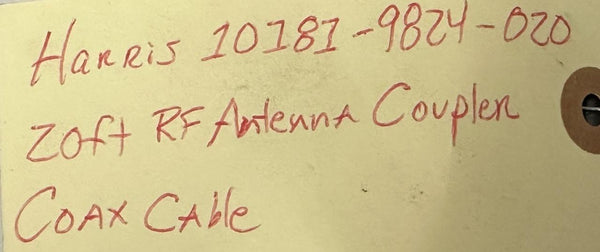 Harris 10181-9824-020
20ft RF Antenna Coupler
Coax Cable